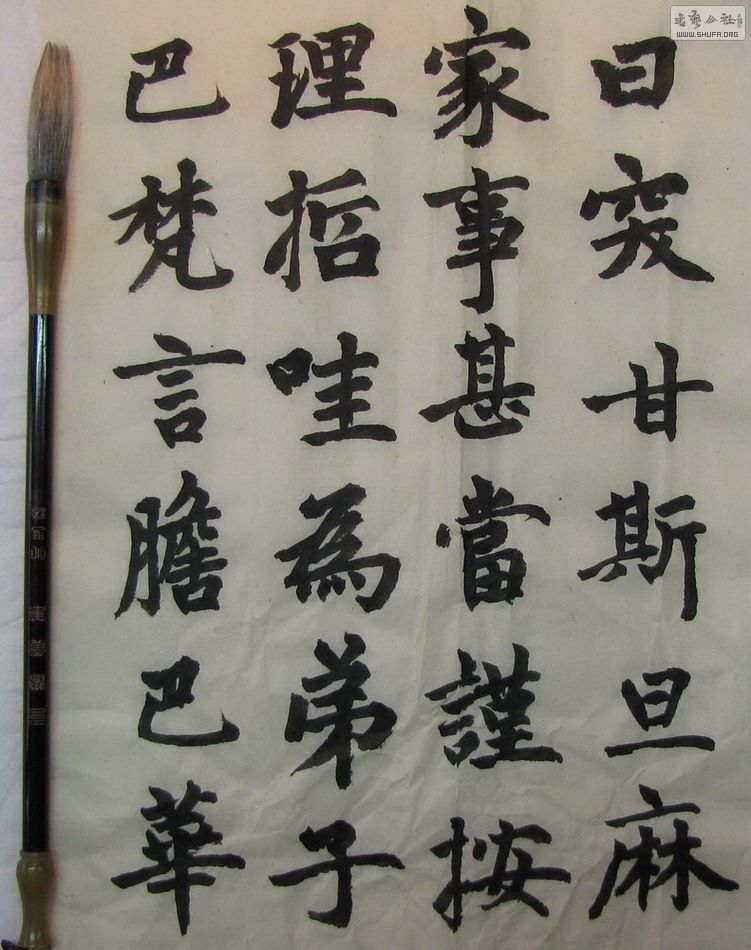 曰突甘斯旦麻
家事甚當謹按
理哲哇為弟子
巴梵言膽巴華
WWW.SHUFA.ORG